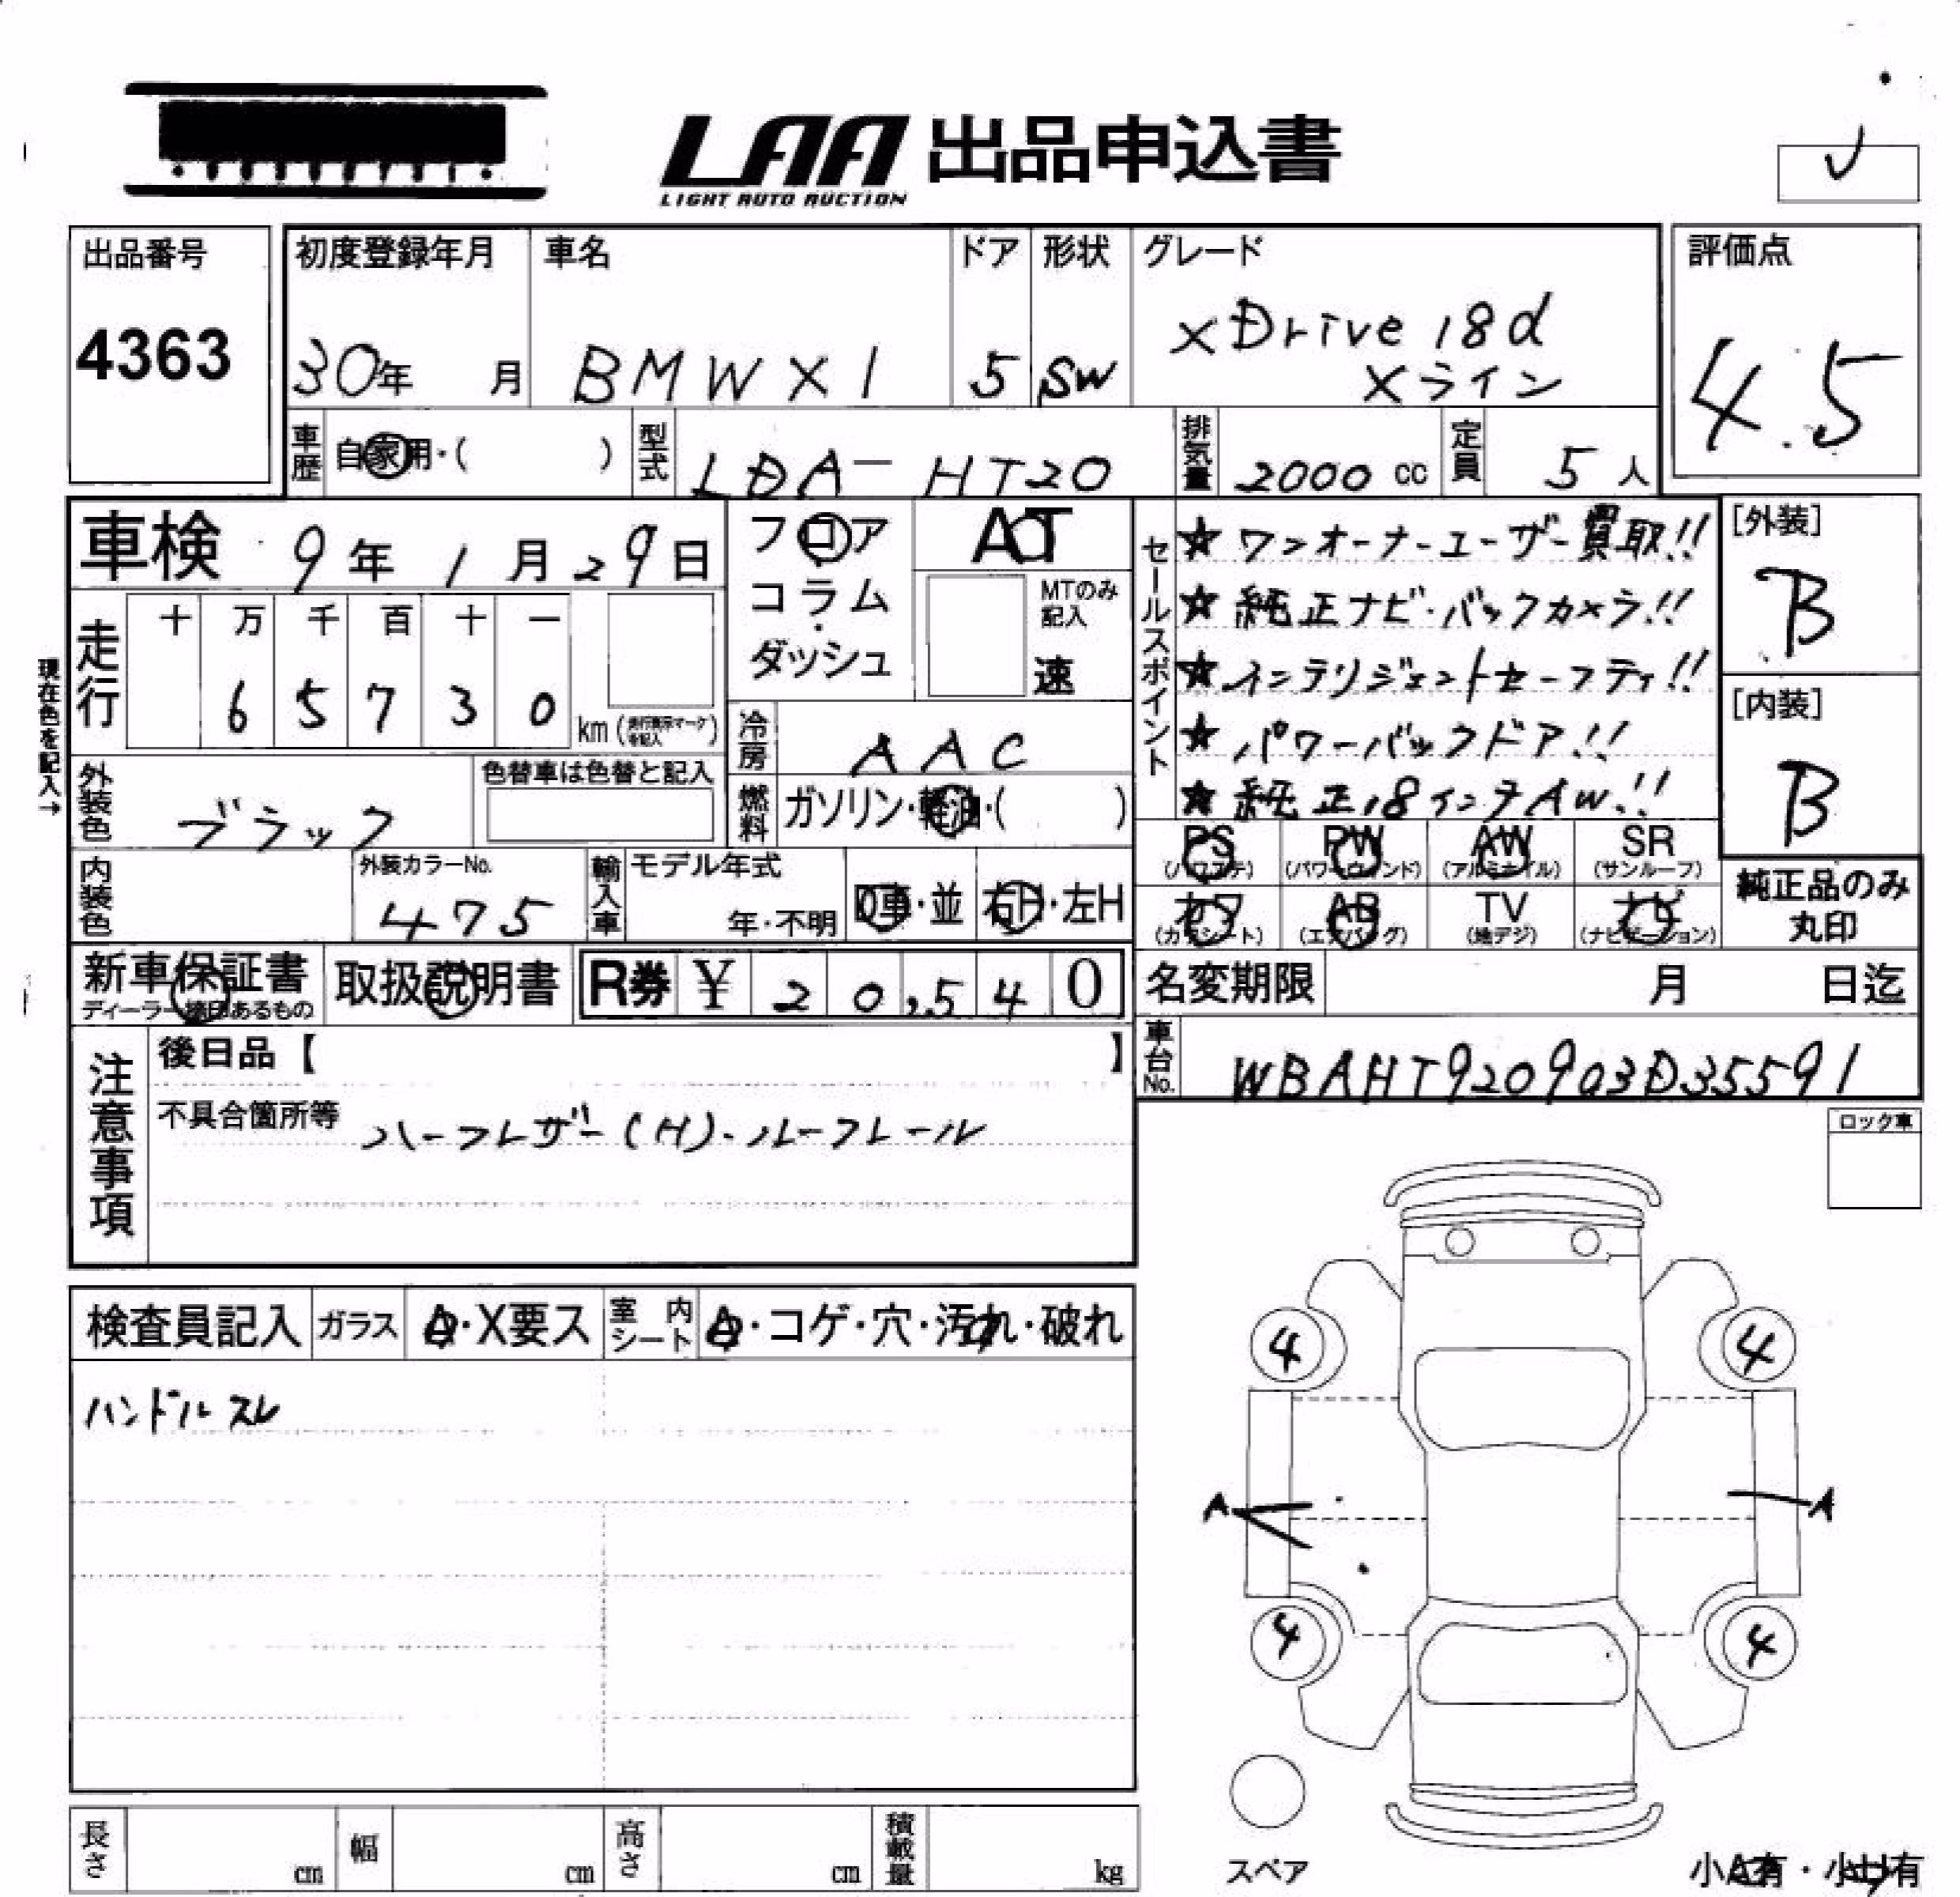 LAA 出品申込書
LIGHT AUTO AUCTION
出品番号
4363
初度登録年月
30年 月
車名
BMW X1
ドア
5
形状
SW
グレード
xDrive 18d
Xライン
評価点
4.5
車歴 自家用・( )
型式 LDA-HT20
排気量 2000 cc
定員 5人
車検 9年1月29日
フロア
コラム
ダッシュ
AT
MTのみ
記入
速
セールスポイント
☆ワンオーナーユーザー買取!!
☆純正ナビ・バックカメラ!!
☆インテリジェントセーフティ!!
☆パワーバックドア!!
☆純正18インチAW!!
[外装]
B
[内装]
B
現在色を記入→
走行
十 万 千 百 十 一
6 5 7 3 0
km (走行表示マーク
を記入)
冷房 AAC
外装色 ブラック
色替車は色替と記入
燃料 ガソリン・軽油・( )
内装色
外装カラーNo.
475
輸入車
モデル年式
年・不明
D車・並
右H・左H
PS
(パワステ)
PW
(パワーウィンド)
AW
(アルミホイル)
SR
(サンルーフ)
カワ
(カワシート)
AB
(エアバッグ)
TV
(地デジ)
ナビ
(ナビゲーション)
純正品のみ
丸印
新車保証書
ディーラー捺印あるもの
取扱説明書
R券 ¥ 20,540
名変期限 月 日迄
車台No. WBAHT920903D35591
注意事項
後日品【 】
不具合箇所等 ハーフレザー(H)・ルーフレール
ロック車
検査員記入
ガラス A・X要ス
室内シート A・コゲ・穴・汚れ・破れ
ハンドルスレ
4 4
A A
4 4
スペア
小A有・小U有
長さ cm
幅 cm
高さ cm
積載量 kg